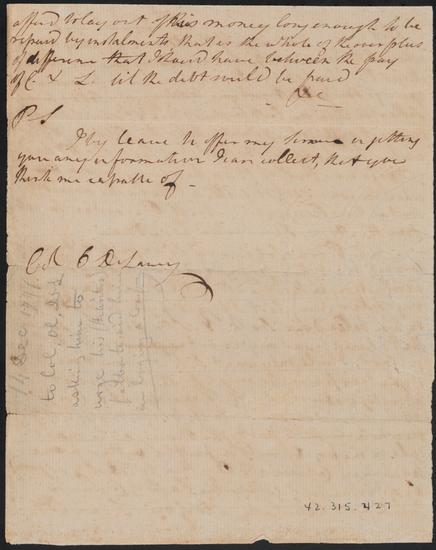 afford to lay out of his money long enough to be
repaid by instalments, that is the whole of the overplus
of difference that I shoud have between the pay
of C. & L. til the debt would be paid
&c
P.S
I beg leave to offer my Service in getting
you any information I can collect, that you
think me capable of -
Col O DeLancy
14 Dec 17
to Col. O. DeL
asking him to
urge his
father to aid him
in buying a
42.315.427